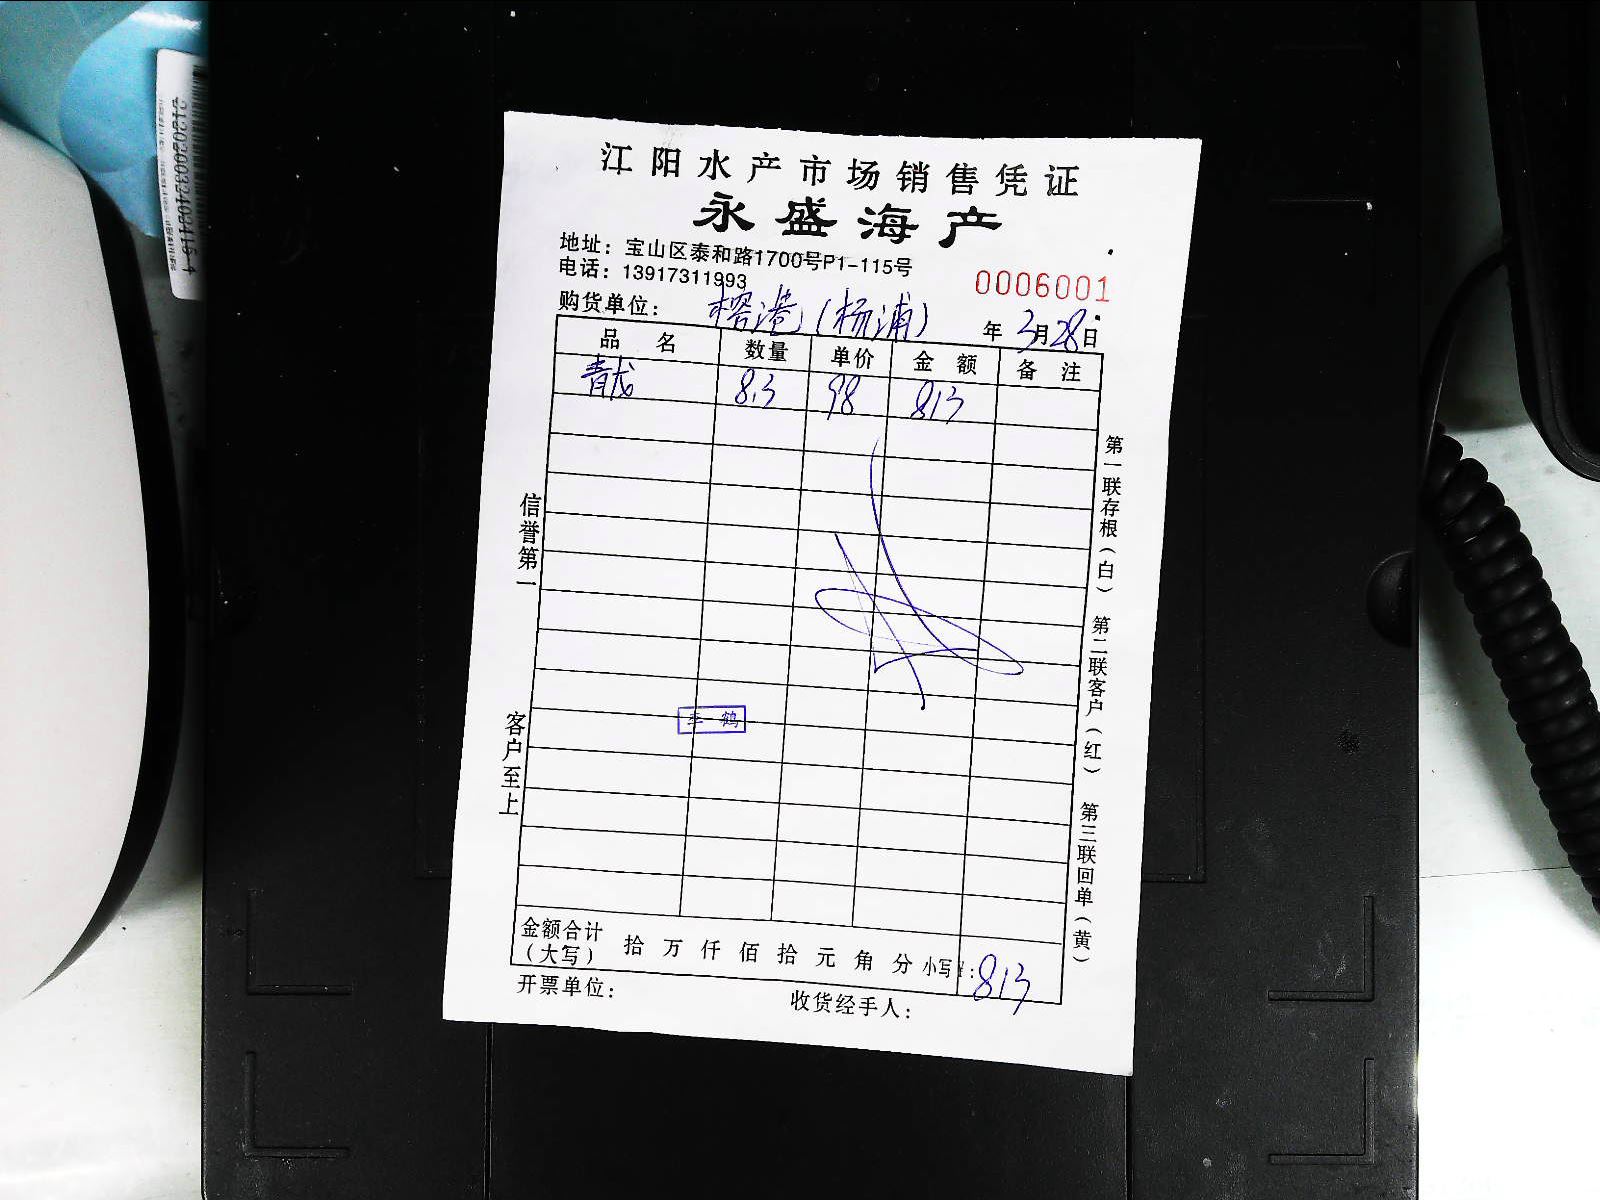 江阳水产市场销售凭证
永盛海产
地址：宝山区泰和路1700号P1-115号
电话：13917311993
0006001
购货单位： 榕港（杨浦）
年 3月28日
品 名 数量 单价 金 额 备 注
青龙 8.3 98 813
信誉第一
客户至上
第一联存根（白） 第二联客户（红） 第三联回单（黄）
李一鹤
金额合计
（大写） 拾 万 仟 佰 拾 元 角 分 小写¥：813
开票单位： 收货经手人：